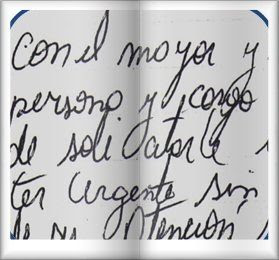 con el mayor y
persona y cargo
de solicitarle
ter Urgente sin
de su Atención